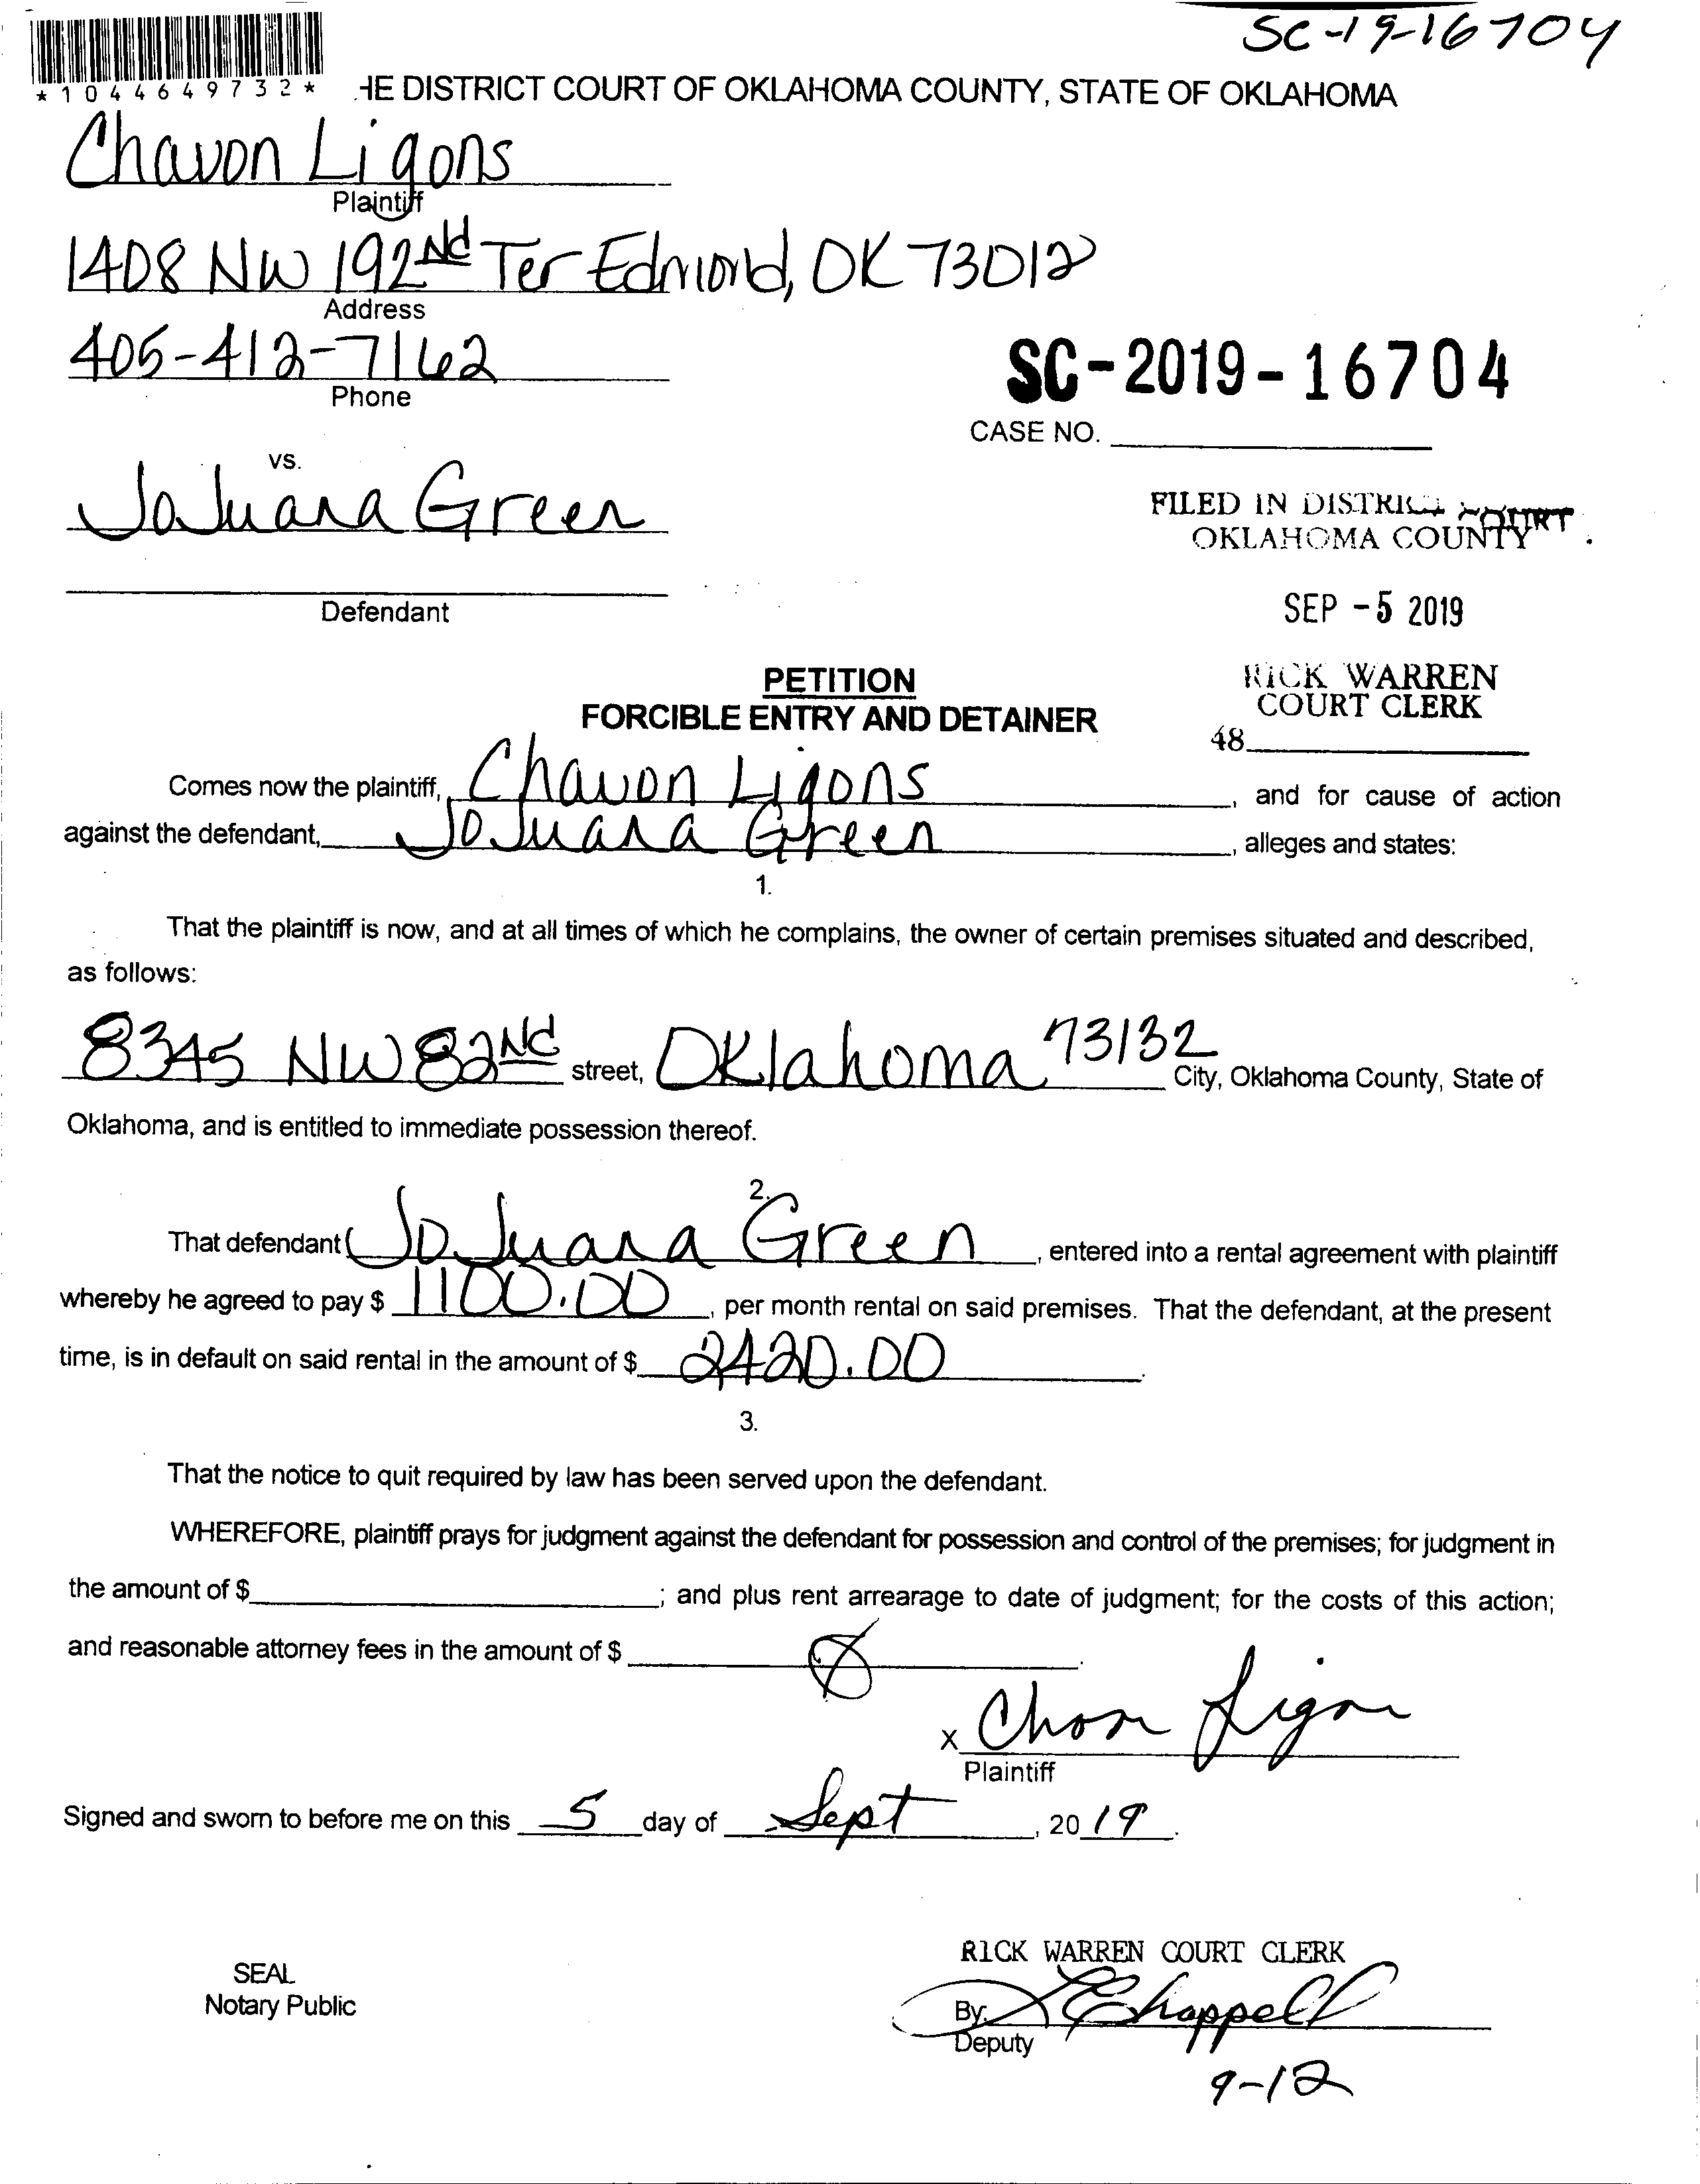 SC-19-16704
*1044649732*
HE DISTRICT COURT OF OKLAHOMA COUNTY, STATE OF OKLAHOMA
Chavon Ligons
Plaintiff
1408 NW 192Nd Ter Edmond, OK 73012
Address
405-412-7162
Phone
SC-2019-16704
CASE NO.
vs.
JaJuana Green
Defendant
FILED IN DISTRICT COURT
OKLAHOMA COUNTY
SEP -5 2019
RICK WARREN
COURT CLERK
48
PETITION
FORCIBLE ENTRY AND DETAINER
Comes now the plaintiff, Chavon Ligons, and for cause of action
against the defendant, JoJuana Green, alleges and states:
1.
That the plaintiff is now, and at all times of which he complains, the owner of certain premises situated and described,
as follows:
8345 NW 82Nd street, Oklahoma 73132 City, Oklahoma County, State of
Oklahoma, and is entitled to immediate possession thereof.
2.
That defendant JoJuana Green, entered into a rental agreement with plaintiff
whereby he agreed to pay $ 1100.00, per month rental on said premises. That the defendant, at the present
time, is in default on said rental in the amount of $ 2420.00.
3.
That the notice to quit required by law has been served upon the defendant.
WHEREFORE, plaintiff prays for judgment against the defendant for possession and control of the premises; for judgment in
the amount of $ ; and plus rent arrearage to date of judgment; for the costs of this action;
and reasonable attorney fees in the amount of $ .
x Chavon Ligons
Plaintiff
Signed and sworn to before me on this 5 day of Sept, 2019.
SEAL
Notary Public
RICK WARREN COURT CLERK
By: Chappell
Deputy
9-12